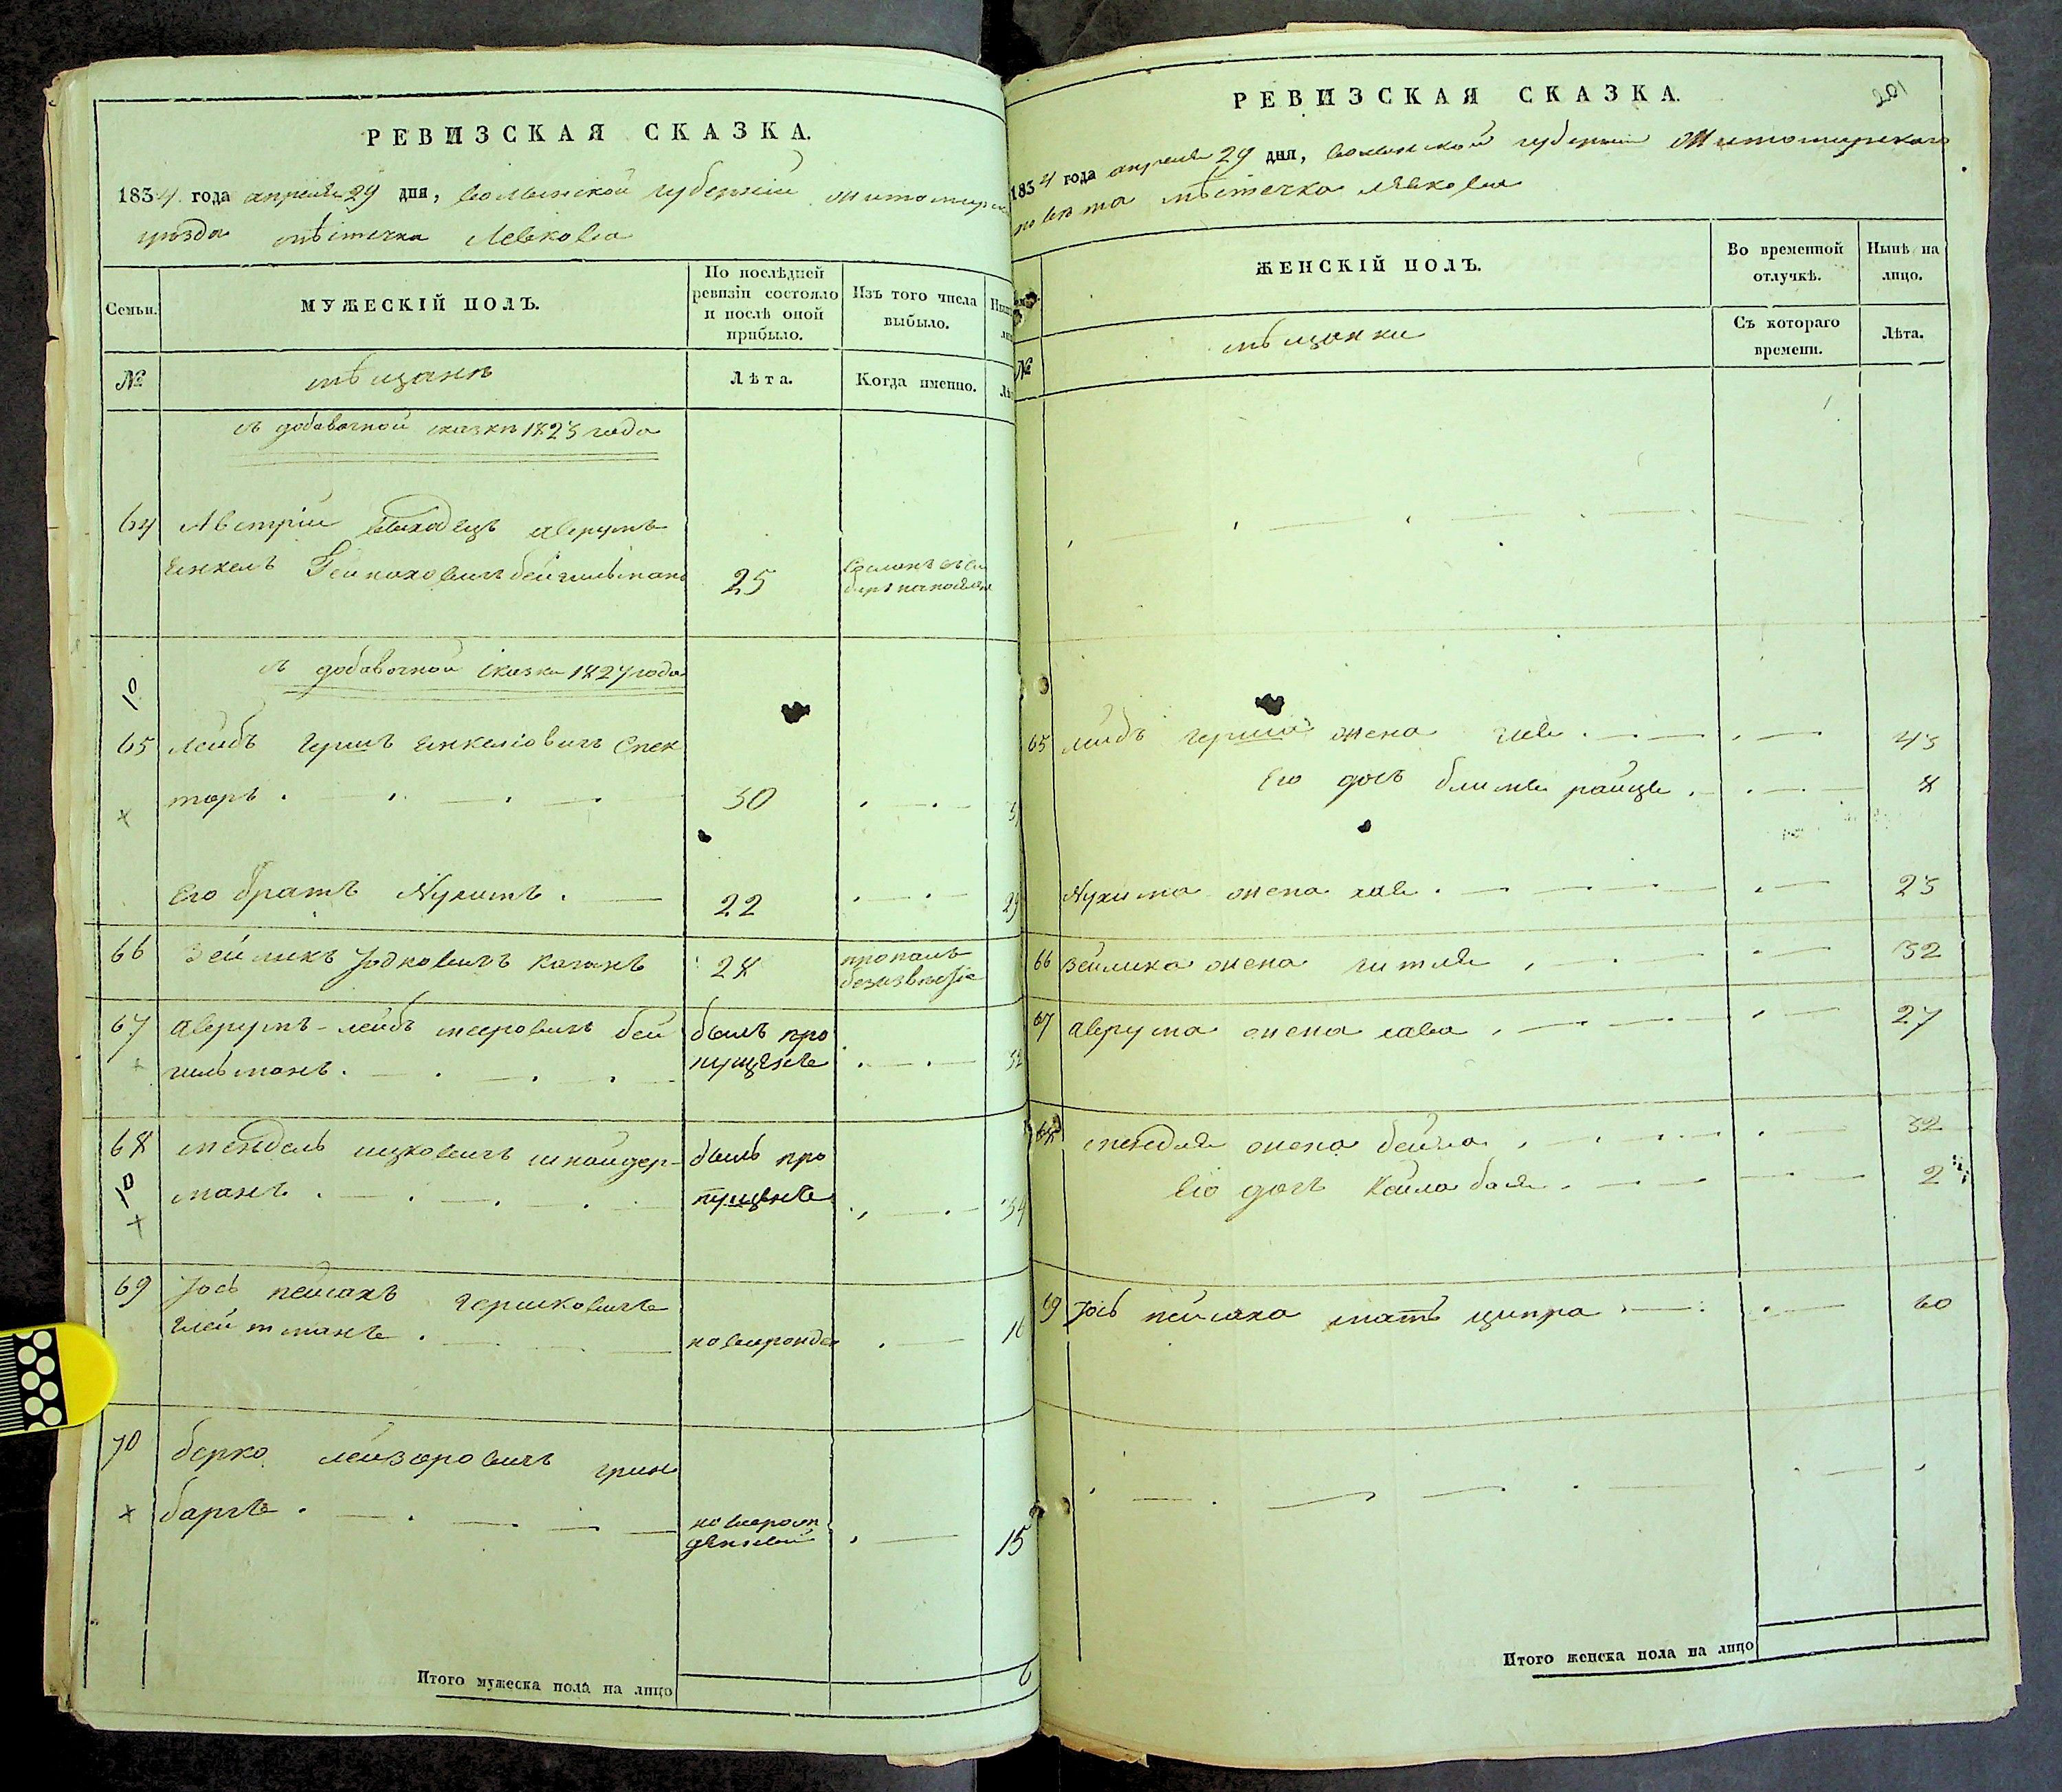 РЕВИЗСКАЯ СКАЗКА.
1834 года апреля 29 дня, волынской губернии житомирск
уѣзда мѣстечка Левкова
Семьи.
МУЖЕСКІЙ ПОЛЪ.
По послѣдней ревизіи состояло и послѣ оной прибыло.
Изъ того числа выбыло.
№
мѣщане
Лѣта.
Когда именно.
съ добавочной сказки 1823 года
64 Австріи выходецъ аврумъ
Енкель бейгильманъ 25
съ добавочной сказки 1827 года
10
65 лейбъ гершъ Енкеліовичъ Спек
торъ 30
Его братъ Нухимъ 22 29
66 Зейликъ Іодковичъ каганъ 28 пропалъ
67 аврумъ-лейбъ мееровичъ бей былъ про
гильманъ пущенъ 32
68 мендель ицковичъ шнайдер- былъ про
10 манъ пущенъ 34
69 Іось пейсахъ гершковичъ
16
70 берко лейзеровичъ грин
баргъ новорож
денный 15
Итого мужеска пола на лицо 6
РЕВИЗСКАЯ СКАЗКА.
201
1834 года апреля 29 дня, волынской губернии Житомирскаго
повѣта мѣстечка левкова
ЖЕНСКІЙ ПОЛЪ.
Во временной отлучкѣ.
Нынѣ на лицо.
№
мѣщанки
Съ котораго времени.
Лѣта.
65 лейбъ герша жена 43
Его дочь блима райця 8
Нухима жена хая 23
66 Зейлика жена гитля 32
67 аврума жена хава 27
68 менделя жена бейла 32
Его дочь Кейла бася 2
69 Іось пейсаха мать ципра 60
Итого женска пола на лицо